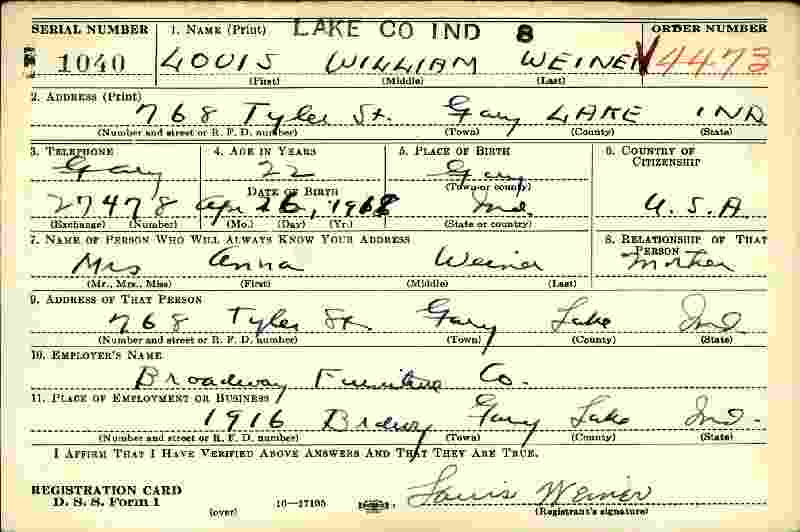 LAKE CO IND 8
SERIAL NUMBER 1. NAME (Print) ORDER NUMBER
1040 LOUIS WILLIAM WEINER V4473
(First) (Middle) (Last)
2. ADDRESS (Print)
768 Tyler St. Gary LAKE IND
(Number and street or R. F. D. number) (Town) (County) (State)
3. TELEPHONE 4. AGE IN YEARS 5. PLACE OF BIRTH 6. COUNTRY OF CITIZENSHIP
Gary 22 Gary
DATE OF BIRTH (Town or county)
27478 Apr 26, Ind. U.S.A.
(Exchange) (Number) (Mo.) (Day) (Yr.) (State or country)
7. NAME OF PERSON WHO WILL ALWAYS KNOW YOUR ADDRESS 8. RELATIONSHIP OF THAT PERSON
Mrs Anna Weiner Mother
(Mr., Mrs., Miss) (First) (Middle) (Last)
9. ADDRESS OF THAT PERSON
768 Tyler St. Gary Lake Ind.
(Number and street or R. F. D. number) (Town) (County) (State)
10. EMPLOYER'S NAME
Broadway Furniture Co.
11. PLACE OF EMPLOYMENT OR BUSINESS
1916 Brdwy Gary Lake Ind.
(Number and street or R. F. D. number) (Town) (County) (State)
I AFFIRM THAT I HAVE VERIFIED ABOVE ANSWERS AND THAT THEY ARE TRUE.
REGISTRATION CARD
D. S. S. Form 1 (over) 16—17195 Louis Weiner
(Registrant's signature)